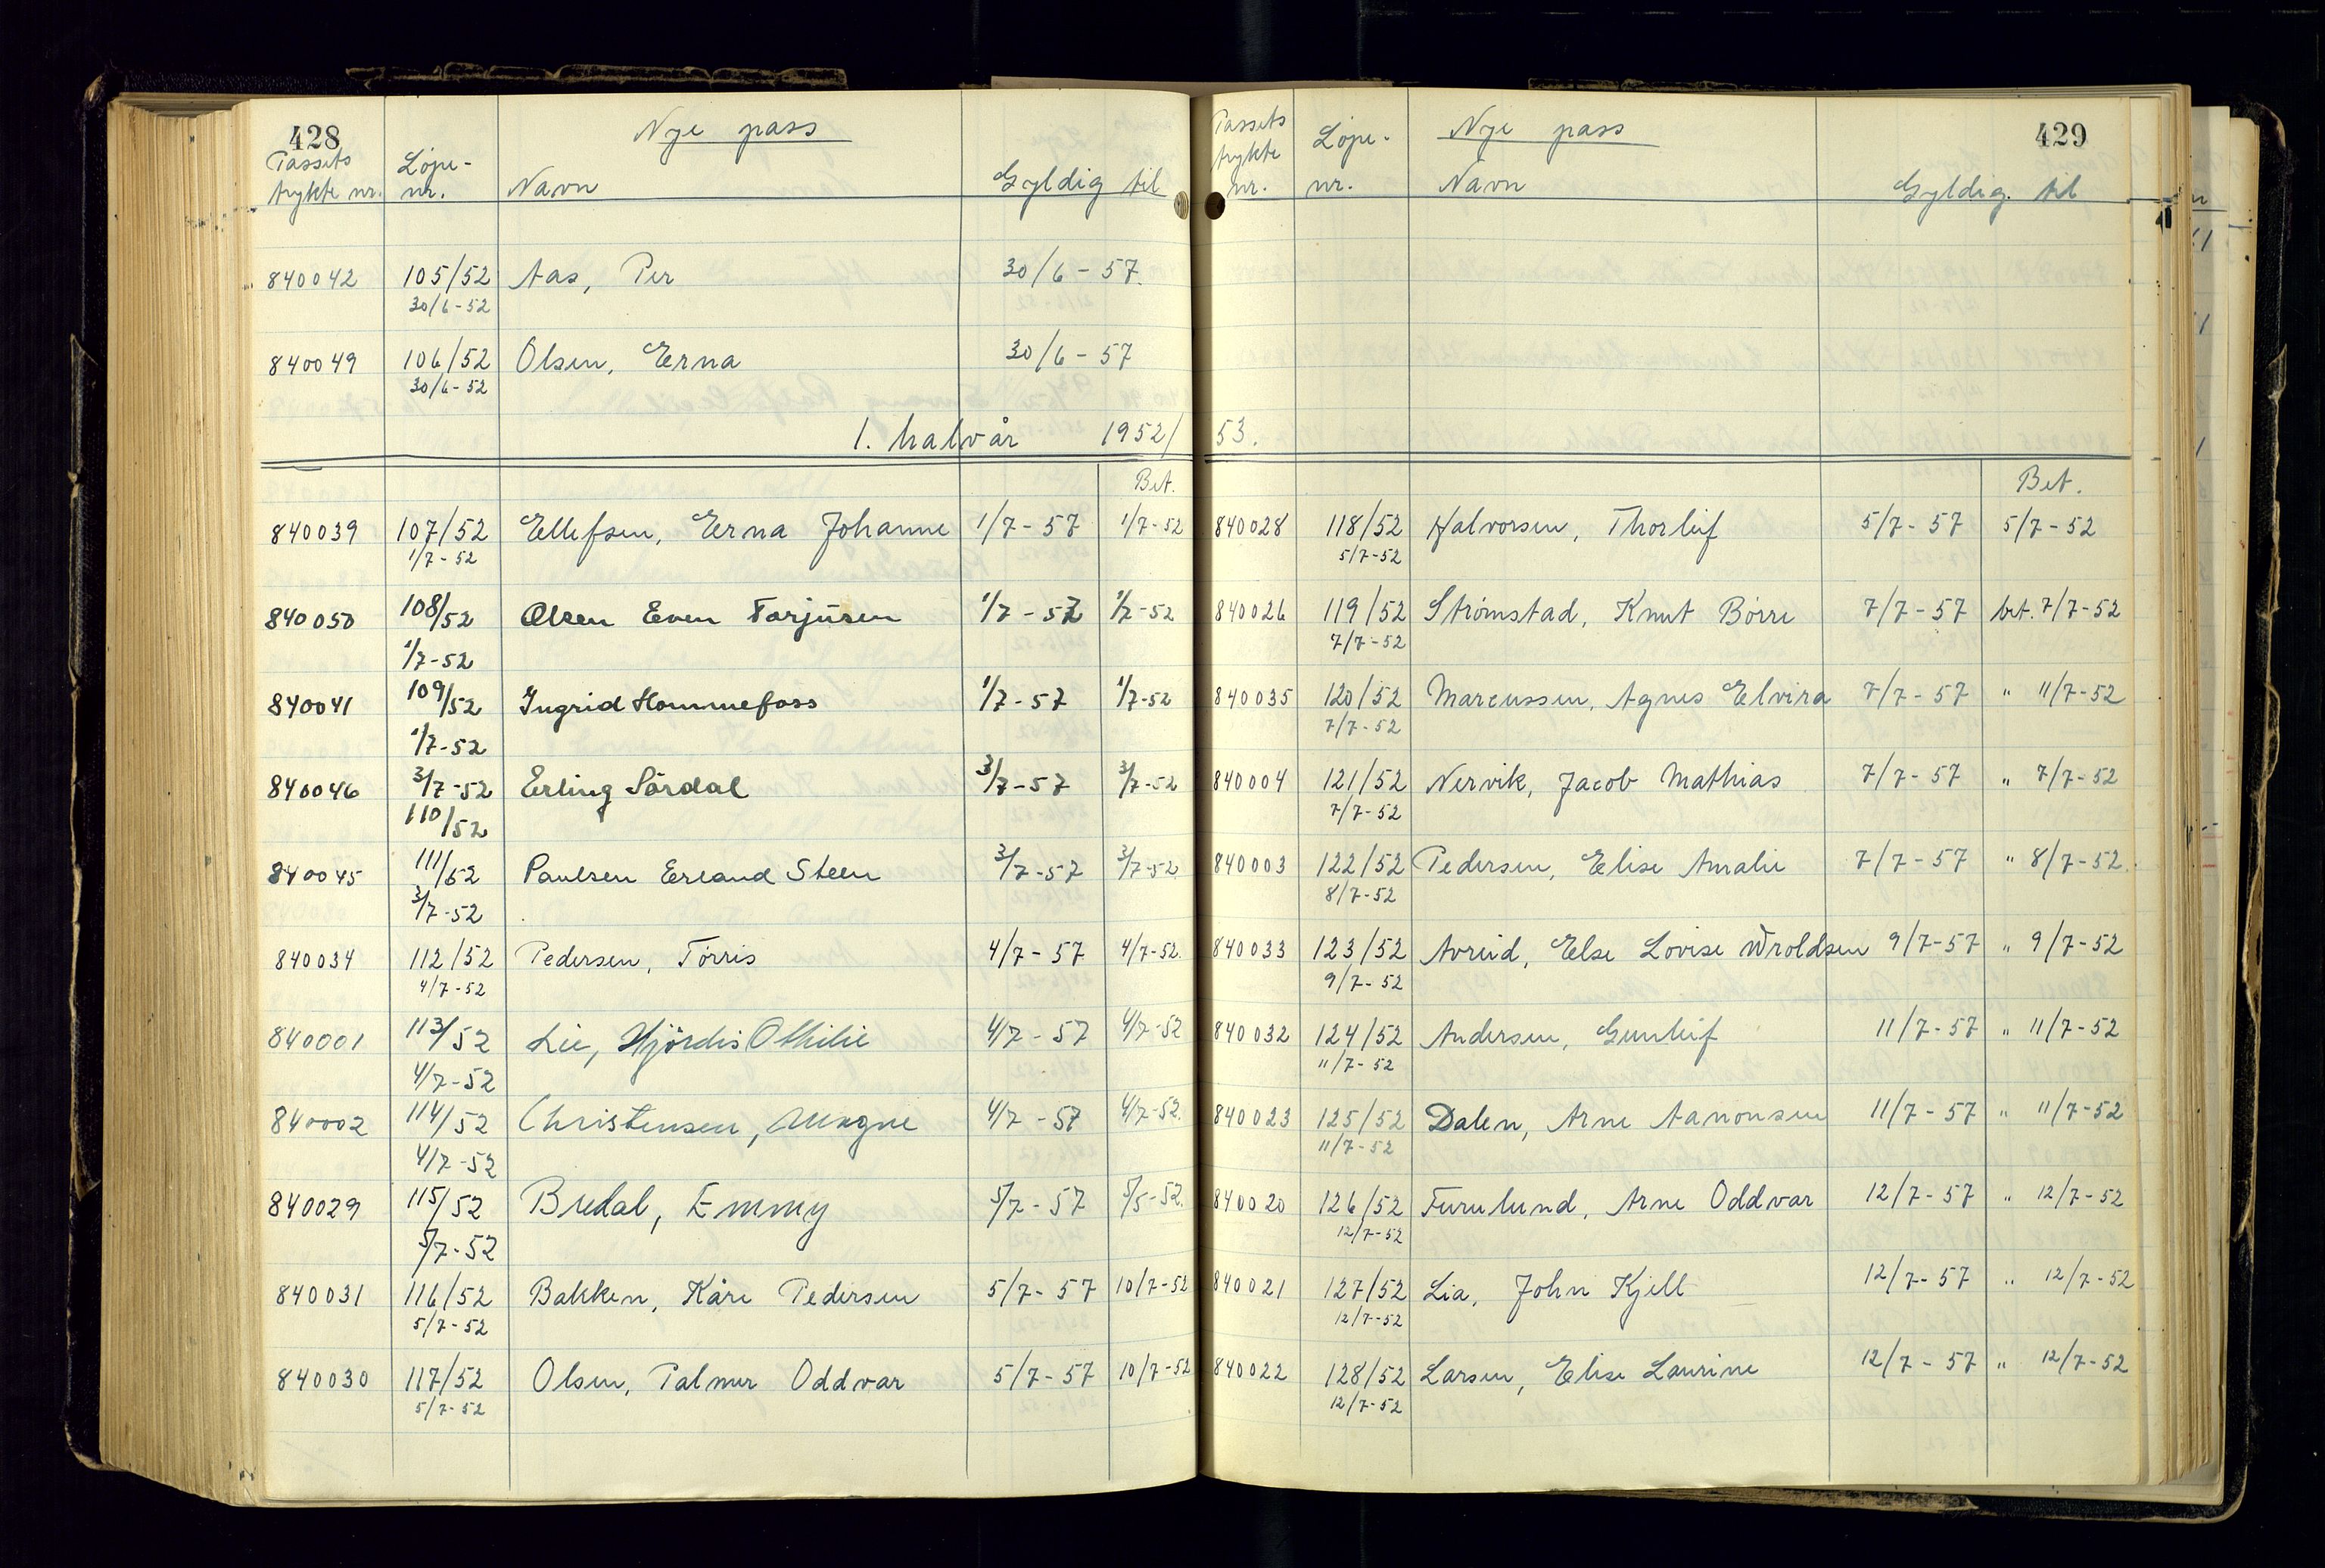 428
Nye pass
Passets Løpe-
trykte nr. nr. Navn Gyldig til
840042 105/52 Aas, Per 30/6 - 57.
30/6-52
840049 106/52 Olsen, Erna 30/6 - 57
30/6-52
1. halvår 1952/
Bet.
840039 107/52 Ellefsen, Erna Johanne 1/7-57 1/7-52
1/7-52
840050 108/52 Olsen Even Torjusen 1/7-57 1/7-52
1/7-52
840041 109/52 Ingrid Hommefoss 1/7-57 1/7-52
1/7-52
840046 3/7-52 Erling Sördal 3/7-57 3/7-52
110/52
840045 111/52 Paulsen Erland Steen 3/7-57 3/7-52
3/7-52
840034 112/52 Pedersen, Tørris 4/7-57 4/7-52.
4/7-52
840001 113/52 Lie, Hjördis Othilie 4/7-57 4/7-52
4/7-52
840002 114/52 Christensen, Magne 4/7-57 4/7-52.
4/7-52
840029 115/52 Bredal, Emmy 5/7-57 5/5-52.
5/7-52
840031 116/52 Bakken, Kåre Pedersen 5/7-57 10/7-52
5/7-52
840030 117/52 Olsen, Palmer Oddvar 5/7-57 10/7-52
5/7-52
429
Passets Løpe- Nye pass
trykte
nr. nr. Navn Gyldig. til
53.
Bet.
840028 118/52 Halvorsen, Thorleif 5/7-57 5/7-52
5/7-52
840026 119/52 Strømstad, Knut Børre 7/7-57 bet. 7/7-52
7/7-52
840035 120/52 Marcussen, Agnes Elvira 7/7-57 " 11/7-52
7/7-52
840004 121/52 Nervik, Jacob Mathias 7/7-57 " 7/7-52
7/7-52
840003 122/52 Pedersen, Elise Amalie 7/7-57 " 8/7-52.
8/7-52
840033 123/52 Avreid, Else Lovise Wroldsen 9/7-57 " 9/7-52
9/7-52
840032 124/52 Andersen, Gunleif 11/7-57 " 11/7-52
11/7-52
840023 125/52 Dalen, Arne Aanonsen 11/7-57 " 11/7-52
11/7-52
840020 126/52 Furulund, Arne Oddvar 12/7-57 " 12/7-52
12/7-52
840021 127/52 Lia, John Kjell 12/7-57 " 12/7-52
12/7-52
840022 128/52 Larsen, Elise Laurine 12/7-57 " 12/7-52
12/7-52